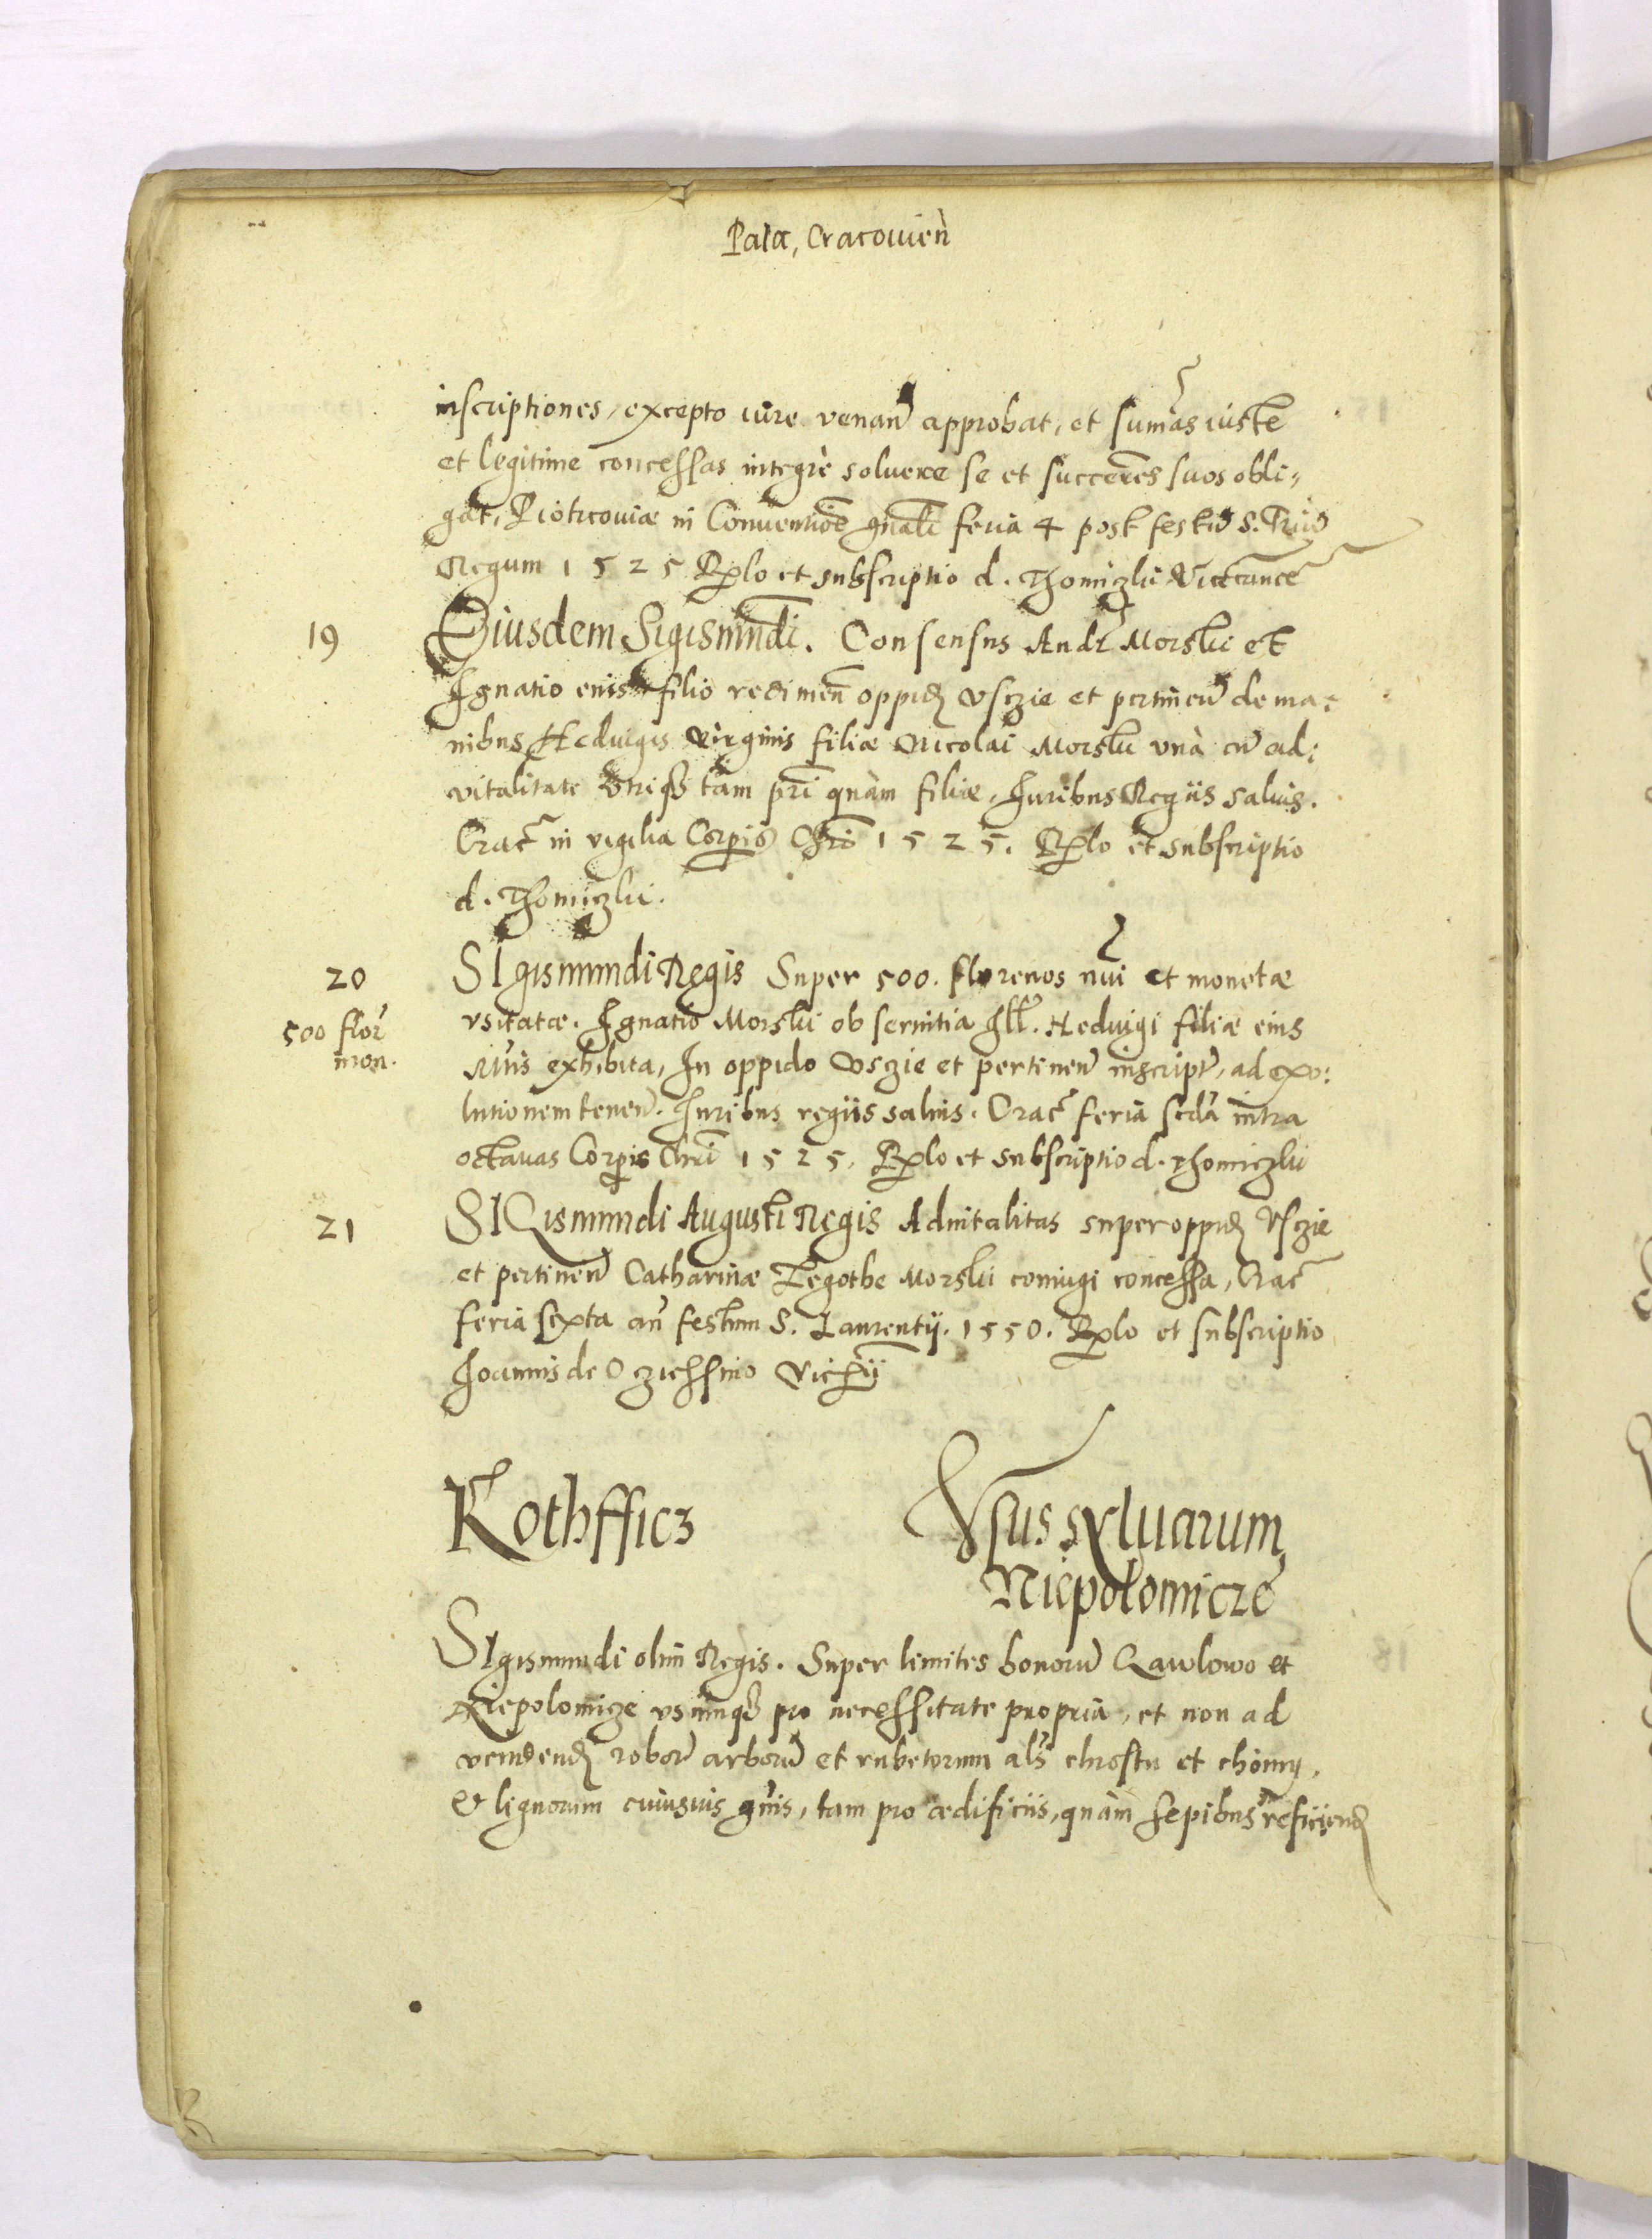 Pala, Cracouien̄
inscriptiones, excepto iure venan̄ approbat, et sum̄as iuste
et legitime concessas integrè soluere se et succeres̄ suos obli„
gat, Piotrcouiæ in Conuentioe gnali feria 4 post festū S. Triū
Regum 1525 Rplo et subscriptio d. Thomiczki Vicecance
19
Eiusdem Sigismundi. Consensus Andr Morski et
Ignatio eius filio redimen̄ oppid Vsczie et pertinen̄ de ma:
nibus Heduigis virginis filiæ Nicolai Morski vnà cū ad:
vitalitate vtriusq tam pr̄i quàm filiæ, Iuribus Regiis saluis.
Crac in vigilia Corpis Chri 1525. Rplo et subscriptio
d. Thomiczki.
20
500 flor
mon.
SIgismundi Regis Super 500. florenos nūi et monetæ
vsitatæ. Ignatio Morski ob seruitia Ill. Heduigi filiæ eius
Ntis exhibita, In oppido Vsczie et pertinen̄ inscript, ad exo:
lutionem tenen̄. Iuribus regiis saluis. Crac feria scda intra
octauas Corpis Chri 1525, Rplo et subscriptio d. Thomiczki
21
SIGismundi Augusti Regis Aduitalitas super oppid Vsczie
et pertinen̄ Catharinæ Legothe Morski coniugi concessa, Crac
feria sexta an̄ festum S. Laurentij. 1550. Rplo et subscriptio
Ioannis de Ocziessino Vicecii
Kothfficz
Vsus syluarum
Niepolomicze
SIgismundi olim Regis. Super limites bonorū Cawlowo et
Niepolomicze vsumq pro necessitate propria, et non ad
vendend robor arborū et rubetorum als chrostu et choiny,
et lignorum cuiusuis gn̄is, tam pro ædificiis, quàm sepibus reficiend